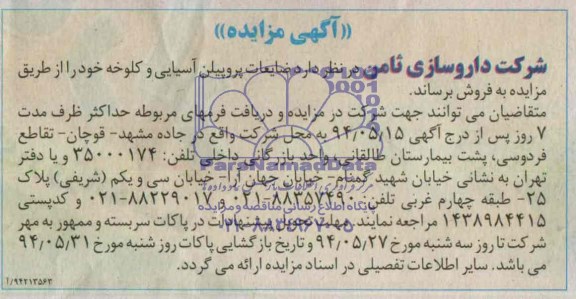 «آگهی مزایده»
شرکت داروسازی ثامن در نظر دارد ضایعات پروپیلن آسیایی و کلوخه خود را از طریق
مزایده به فروش برساند.
متقاضیان می توانند جهت شرکت در مزایده و دریافت فرمهای مربوطه حداکثر ظرف مدت
۷ روز پس از درج آگهی ۹۴/۰۵/۱۵ به محل شرکت واقع در جاده مشهد- قوچان- تقاطع
فردوسی، پشت بیمارستان طالقانی، واحد بازرگانی داخلی تلفن: ۳۵۰۰۰۱۷۴ و یا دفتر
تهران به نشانی خیابان شهید گمنام- خیابان جهان آرا- خیابان سی و یکم (شریفی) پلاک
۲۵- طبقه چهارم غربی تلفن: ۸۸۳۵۷۴۹۰-۰۲۱ و ۸۸۲۲۹۰۱۷-۰۲۱ و کدپستی
۱۴۳۸۹۸۴۴۱۵ مراجعه نمایند. مهلت تحویل پیشنهادات در پاکات سربسته و ممهور به مهر
شرکت تا روز سه شنبه مورخ ۹۴/۰۵/۲۷ و تاریخ بازگشایی پاکات روز شنبه مورخ ۹۴/۰۵/۳۱
می باشد. سایر اطلاعات تفصیلی در اسناد مزایده ارائه می گردد.
۹۴۲۱۳۵۶۳/آ
ParsNamadData
پایگاه اطلاع رسانی مناقصه و مزایده